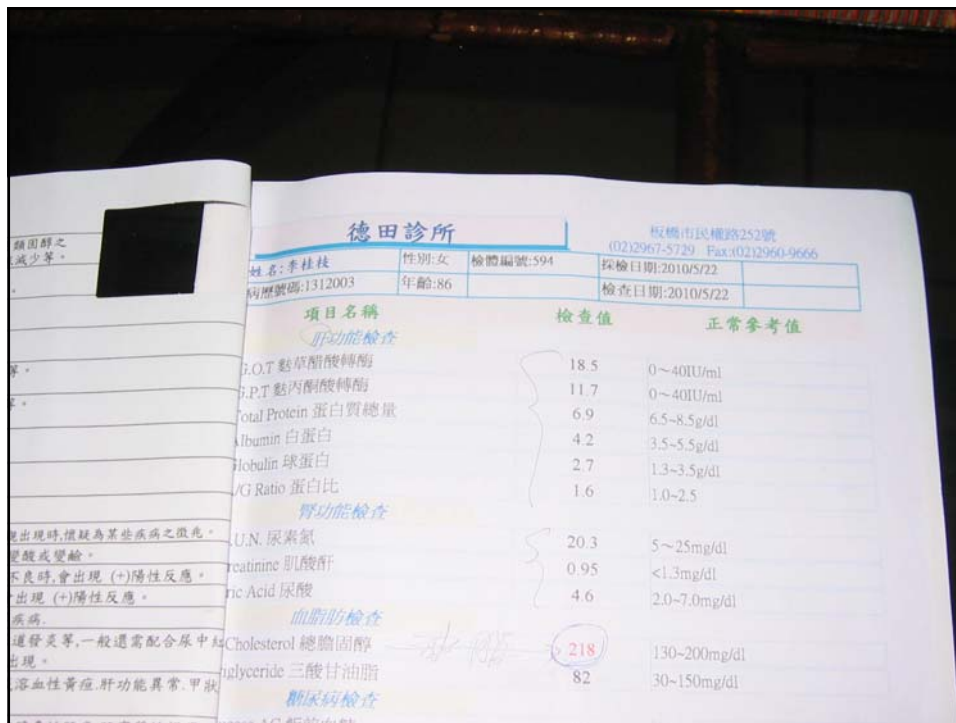 類固醇之
減少等。
出現時,懷疑為某些疾病之徵兆。
變酸或變鹼。
不良時,會出現 (+)陽性反應。
出現 (+)陽性反應。
疾病.
道發炎等,一般還需配合尿中紅
出現。
溶血性黃疸.肝功能異常.甲狀
德田診所
板橋市民權路252號
(02)2967-5729 Fax:(02)2960-9666
姓名:李桂枝 性別:女 檢體編號:594 採檢日期:2010/5/22
病歷號碼:1312003 年齡:86 檢查日期:2010/5/22
項目名稱 檢查值 正常參考值
肝功能檢查
G.O.T 麩草醋酸轉酶 18.5 0~40IU/ml
G.P.T 麩丙酮酸轉酶 11.7 0~40IU/ml
Total Protein 蛋白質總量 6.9 6.5~8.5g/dl
Albumin 白蛋白 4.2 3.5~5.5g/dl
Globulin 球蛋白 2.7 1.3~3.5g/dl
A/G Ratio 蛋白比 1.6 1.0~2.5
腎功能檢查
.U.N. 尿素氮 20.3 5~25mg/dl
reatinine 肌酸酐 0.95 <1.3mg/dl
ric Acid 尿酸 4.6 2.0~7.0mg/dl
血脂肪檢查
Cholesterol 總膽固醇 218 130~200mg/dl
riglyceride 三酸甘油脂 82 30~150mg/dl
糖尿病檢查